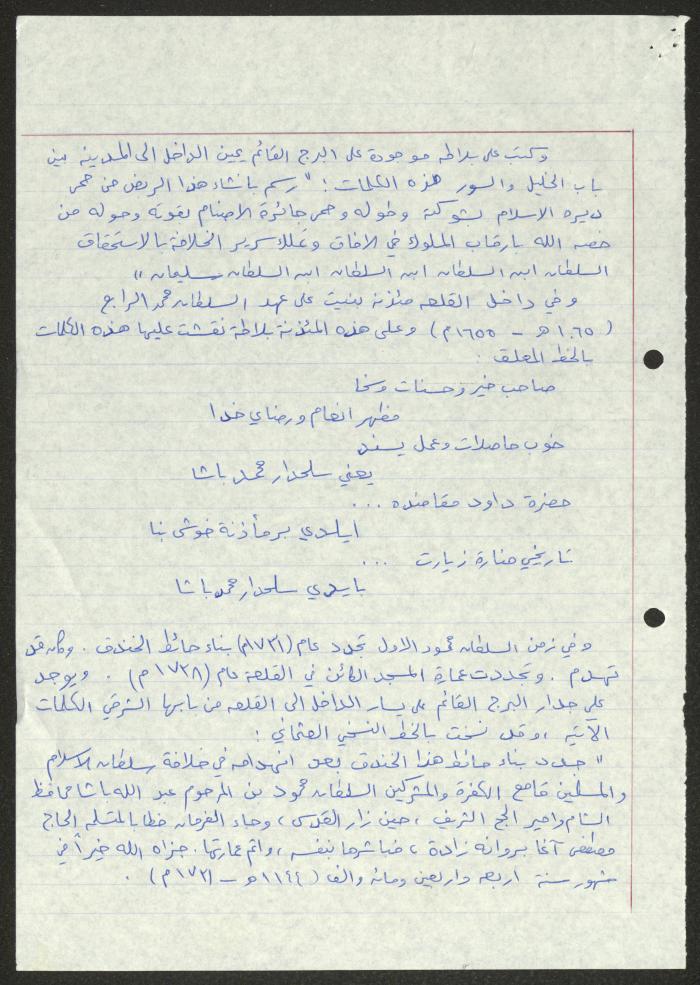 وكتب على بلاطه موجودة على البرج القائم يمين الداخل الى المدينه بين
باب الخليل والسور هذه الكلمات : " رسم بانشاء هذا الربض من حمى
ديره الاسلام بشوكته وطوله ومحى جائرة الاصنام بقوته وحوله من
خصه الله بارقاب الملوك في الافاق وتملك سرير الخلافة بالاستحقاق
السلطان ابن السلطان ابن السلطان ابن السلطان سليمان "
وفي داخل القلعه مئذنه بنيت على عهد السلطان محمد الرابع
( ١٠٦٥ هـ - ١٦٥٥ م ) وعلى هذه المئذنة بلاطة نقشت عليها هذه الكلمات
بالخط المعلق :
صاحب خير وحسنات وسخا
مظهر انعام ورضاي خدا
خوب حاصلات وعمل يسند
يعني سلحدار محمد باشا
حضرة داود مقامنده ...
ايلدي بر مأذنة خوش بنا
تاريخي منارة زيارت ...
بايدي سلحدار محمد باشا
وفي زمن السلطان محمود الاول تجدد عام (١٧٣١م) بناء حائط الخندق . وكان قد
تهدم . وتجددت عمارة المسجد الكائن في القلعة عام (١٧٣٨ م) . ويوجد
على جدار البرج القائم على يسار الداخل الى القلعه من بابها الشرقي الكلمات
الآتيه ، وقد نسخت بالخط النسخي العثماني :
" جدد بناء حائط هذا الخندق بعد انهدامه في خلافة سلطان الاسلام
والمسلمين قامع الكفرة والمشركين السلطان محمود بن المرحوم عبد الله باشا محافظ
الشام وامير الحج الشريف ، حين زار القدس ، وجاء الفرمان خطابا لمتسلمه الحاج
مصطفى آغا بروانه زادة ، فباشرها بنفسه ، واتم عمارتها . جزاه الله خيراً في
شهور سنة اربعه واربعين ومائه والف ( ١١٤٤ هـ - ١٧٣١ م ) .